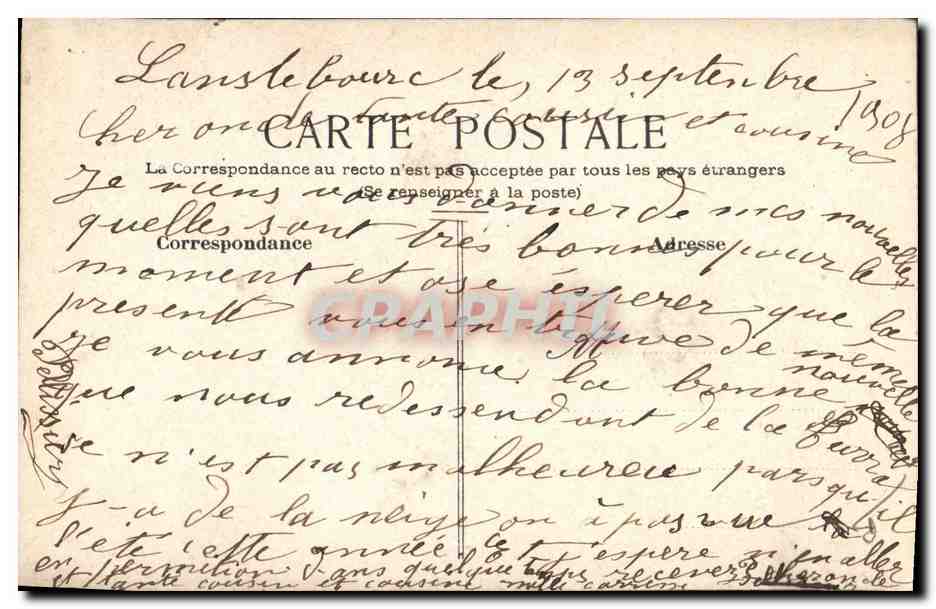 Lanslebourc le, 13 septenbre 1908
CARTE POSTALE
cher oncle tante cousin et cousine
La Correspondance au recto n'est pas acceptée par tous les pays étrangers
(Se renseigner à la poste)
Je viens vous donner de mes nouvelles
quelles sont très bonnes pour le
Correspondance
Adresse
moment et ose ésperer que la
presente vous en truve de même
CPAPHTI
Je vous annonce la bonne nouvelle
que nous redessendont de la
se n'est pas malheureu parsqu-il
y-a de la neige on à pas vue
l'été cette année et j'espere m'en aller
en permition dans quelque temps recever
et tante cousin et cousine mille